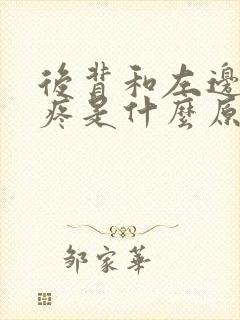 後背和左邊
疼是什麼原
鄒家華